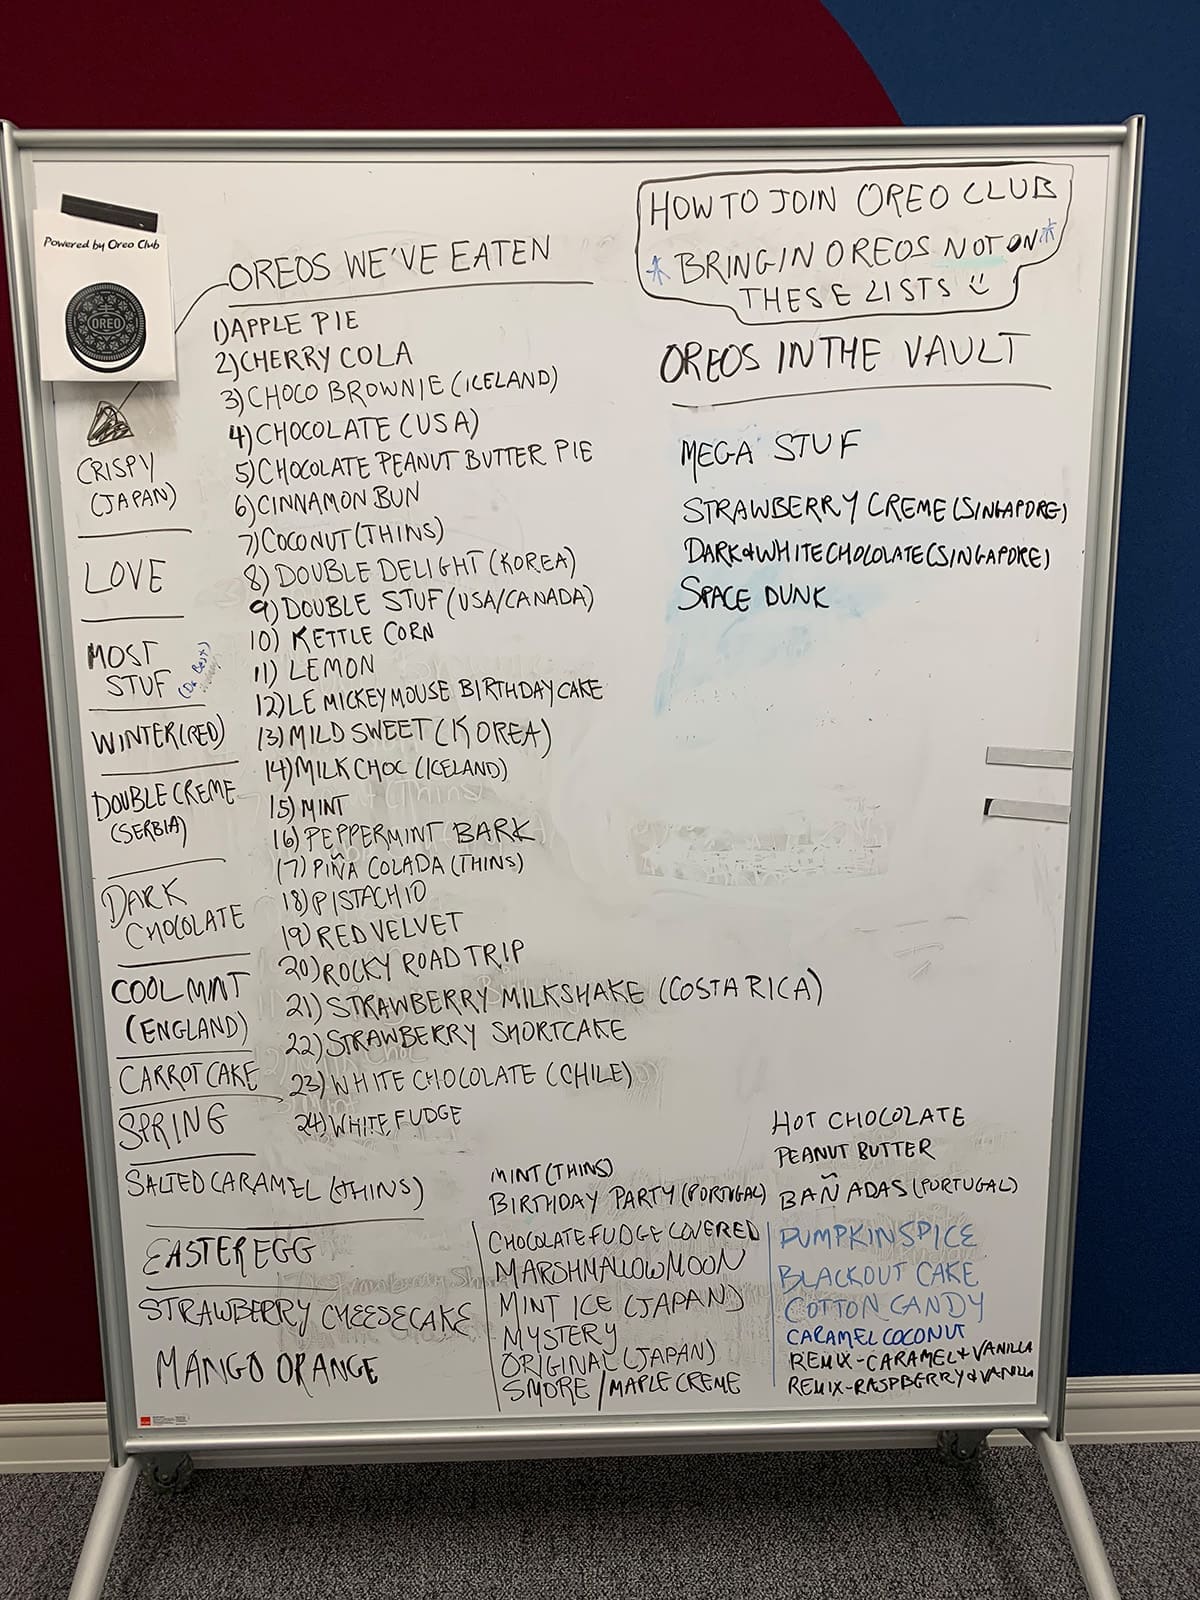 Powered by Oreo Club
OREO
HOW TO JOIN OREO CLUB
* BRING IN OREOS NOT ON *
THESE LISTS
OREOS WE'VE EATEN
1) APPLE PIE
2) CHERRY COLA
3) CHOCO BROWNIE (ICELAND)
4) CHOCOLATE (USA)
5) CHOCOLATE PEANUT BUTTER PIE
6) CINNAMON BUN
7) COCONUT (THINS)
8) DOUBLE DELIGHT (KOREA)
9) DOUBLE STUF (USA/CANADA)
10) KETTLE CORN
11) LEMON
12) LE MICKEY MOUSE BIRTHDAY CAKE
13) MILD SWEET (KOREA)
14) MILK CHOC (ICELAND)
15) MINT
16) PEPPERMINT BARK
17) PIÑA COLADA (THINS)
18) PISTACHIO
19) RED VELVET
20) ROCKY ROAD TRIP
21) STRAWBERRY MILKSHAKE (COSTA RICA)
22) STRAWBERRY SHORTCAKE
23) WHITE CHOCOLATE (CHILE)
24) WHITE FUDGE
CRISPY
(JAPAN)
LOVE
MOST
STUF
WINTER (RED)
DOUBLE CREME
(SERBIA)
DARK
CHOCOLATE
COOL MINT
(ENGLAND)
CARROT CAKE
SPRING
SALTED CARAMEL (THINS)
EASTER EGG
STRAWBERRY CHEESECAKE
MANGO ORANGE
MINT (THINS)
BIRTHDAY PARTY (PORTUGAL)
CHOCOLATE FUDGE COVERED
MARSHMALLOW MOON
MINT ICE (JAPAN)
MYSTERY
ORIGINAL (JAPAN)
SMORE / MAPLE CREME
HOT CHOCOLATE
PEANUT BUTTER
BAÑADAS (PORTUGAL)
PUMPKIN SPICE
BLACKOUT CAKE
COTTON CANDY
CARAMEL COCONUT
REMIX-CARAMEL & VANILLA
REMIX-RASPBERRY & VANILLA
OREOS IN THE VAULT
MEGA STUF
STRAWBERRY CREME (SINGAPORE)
DARK & WHITE CHOLOLATE (SINGAPORE)
SPACE DUNK